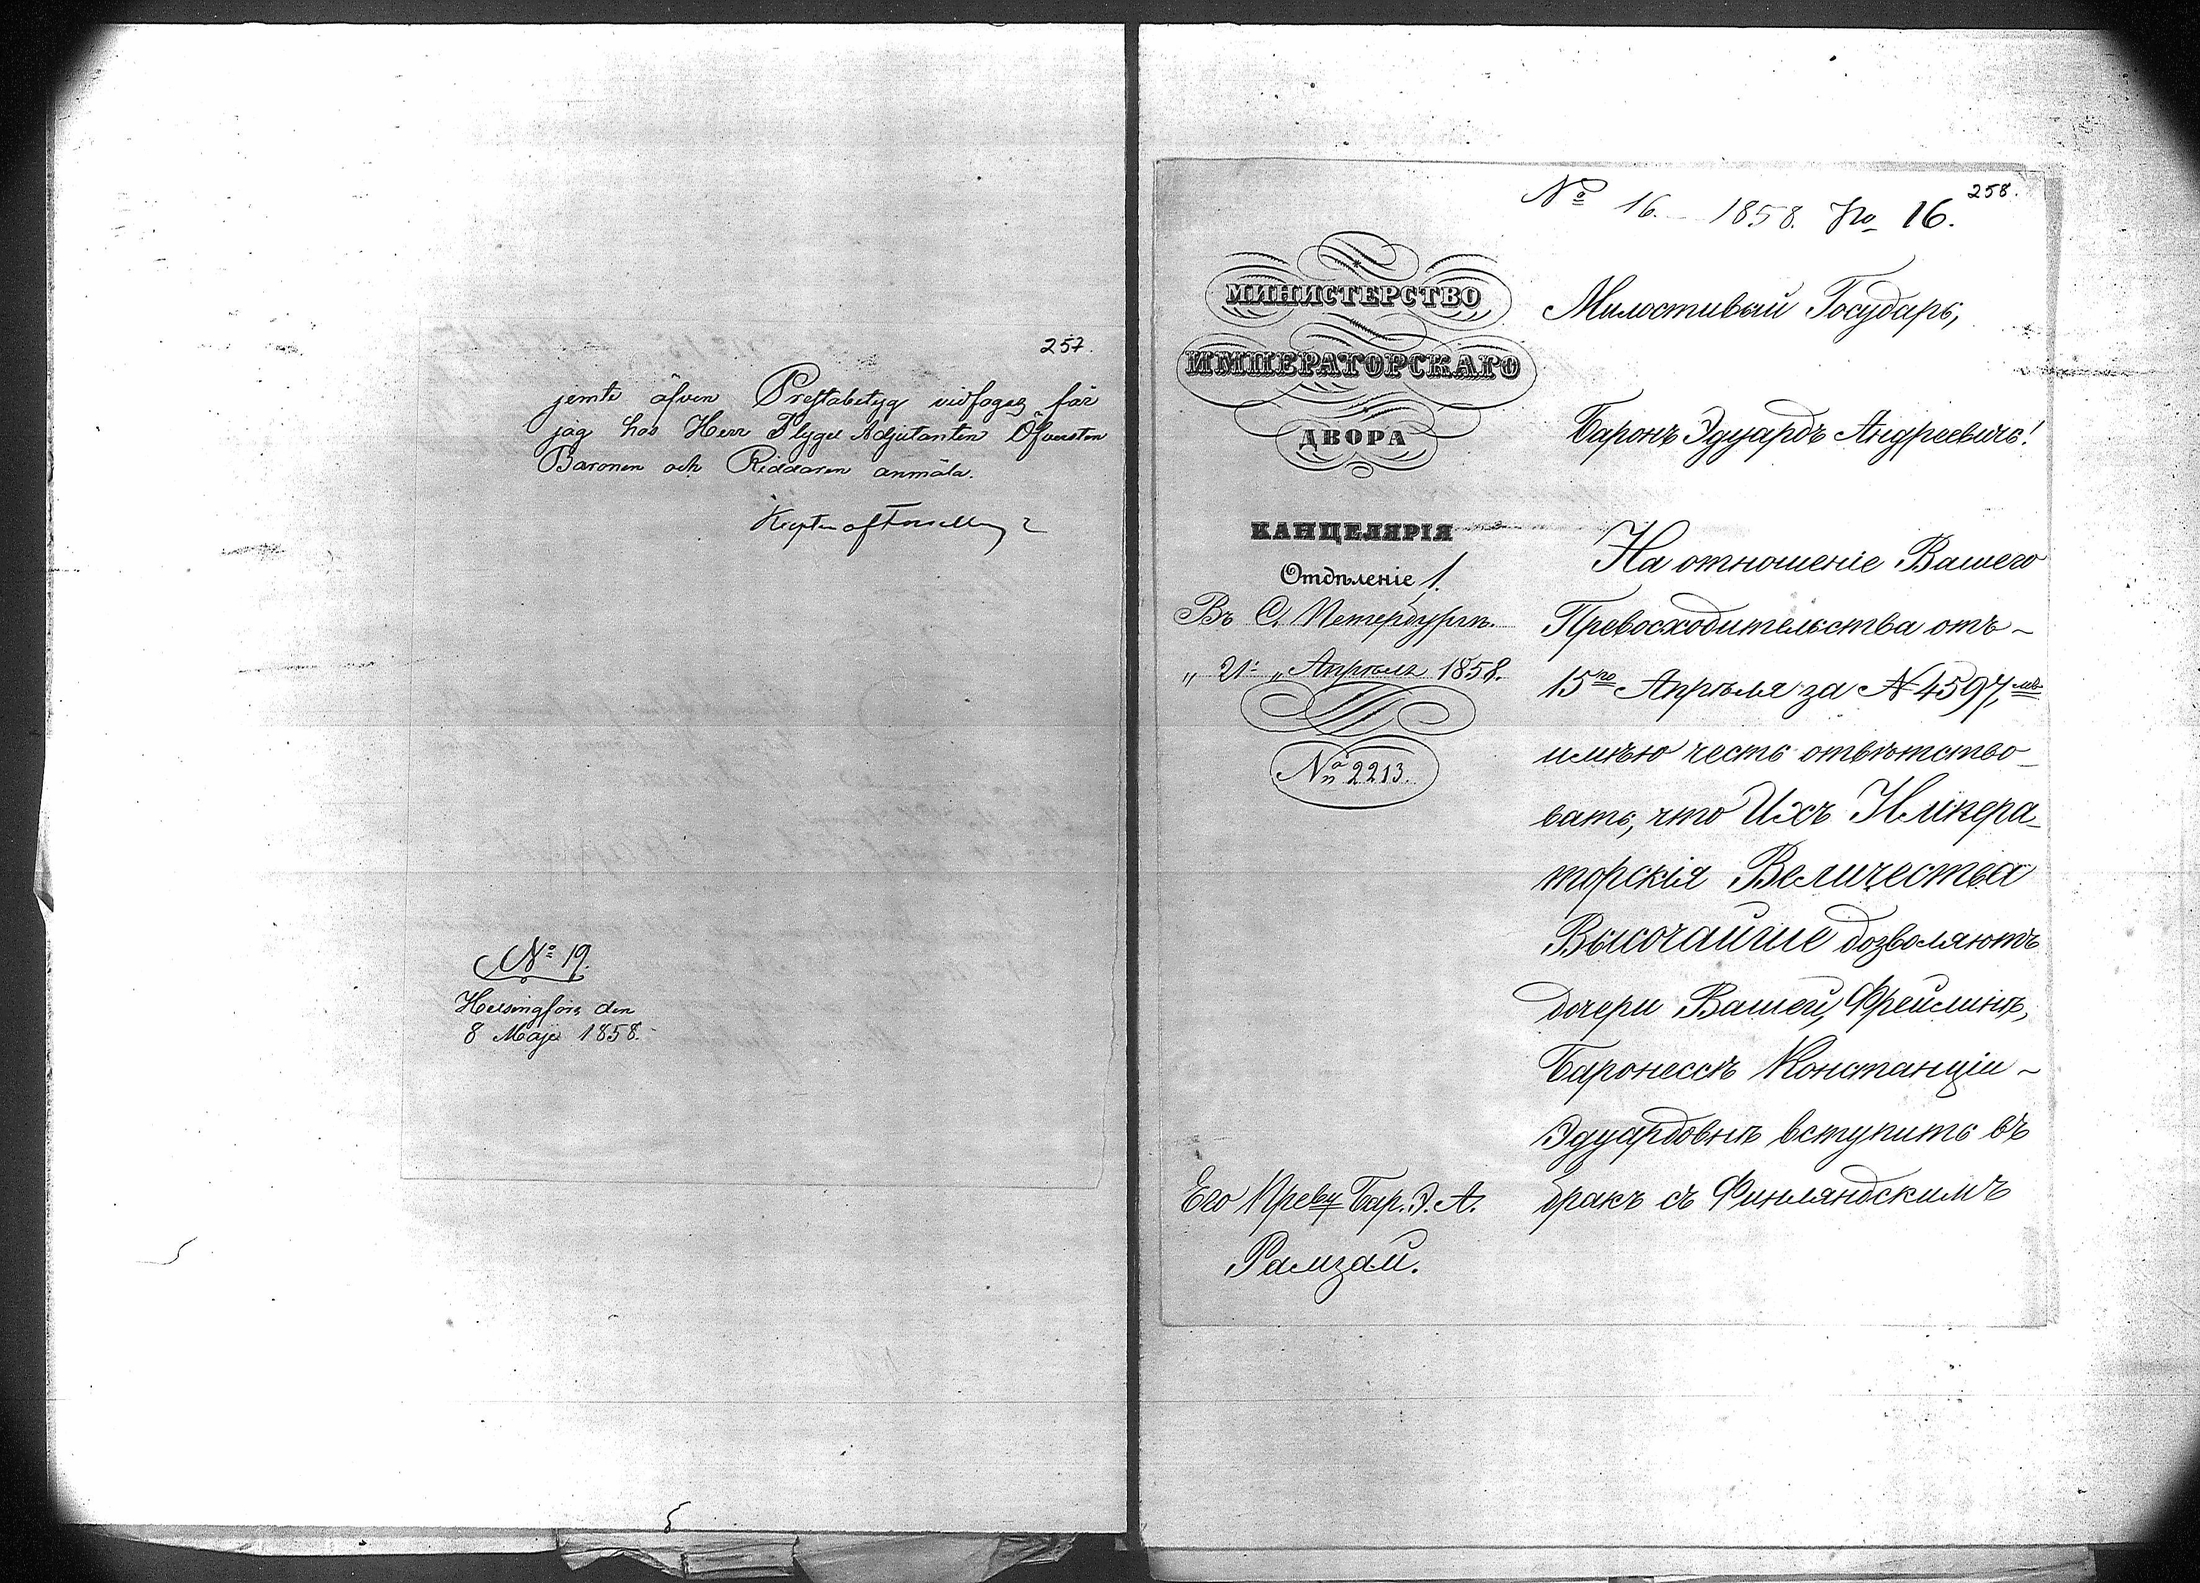 257.
jemte äfven Prestabetyg vidfogas får
jag hos Herr Flygel Adjutanten Öfversten
Baronen och Riddaren anmäla.
No 19.
Helsingfors den
8 Maji 1858.
258.
No 16. 1858. No 16.
МИНИСТЕРСТВО
ИМПЕРАТОРСКАГО
ДВОРА
КАНЦЕЛЯРІЯ
Отдѣленіе 1.
Въ С. Петербургѣ.
„ 21 „ Апрѣля 1858.
No 2213.
Его Преву Бар. Э. А.
Рамзай.
Милостивый Государь,
Баронъ Эдуардъ Андреевичь!
На отношеніе Вашего
Превосходительства отъ ~
15го Апрѣля за N 4597мъ
имѣю честь отвѣтство-
вать, что Ихъ Импера-
торскія Величества
Высочайше дозволяютъ
дочери Вашей, Фрейлинѣ,
Баронессѣ Констанціи ~
Эдуардовнѣ вступить въ
бракъ съ Финляндскимъ